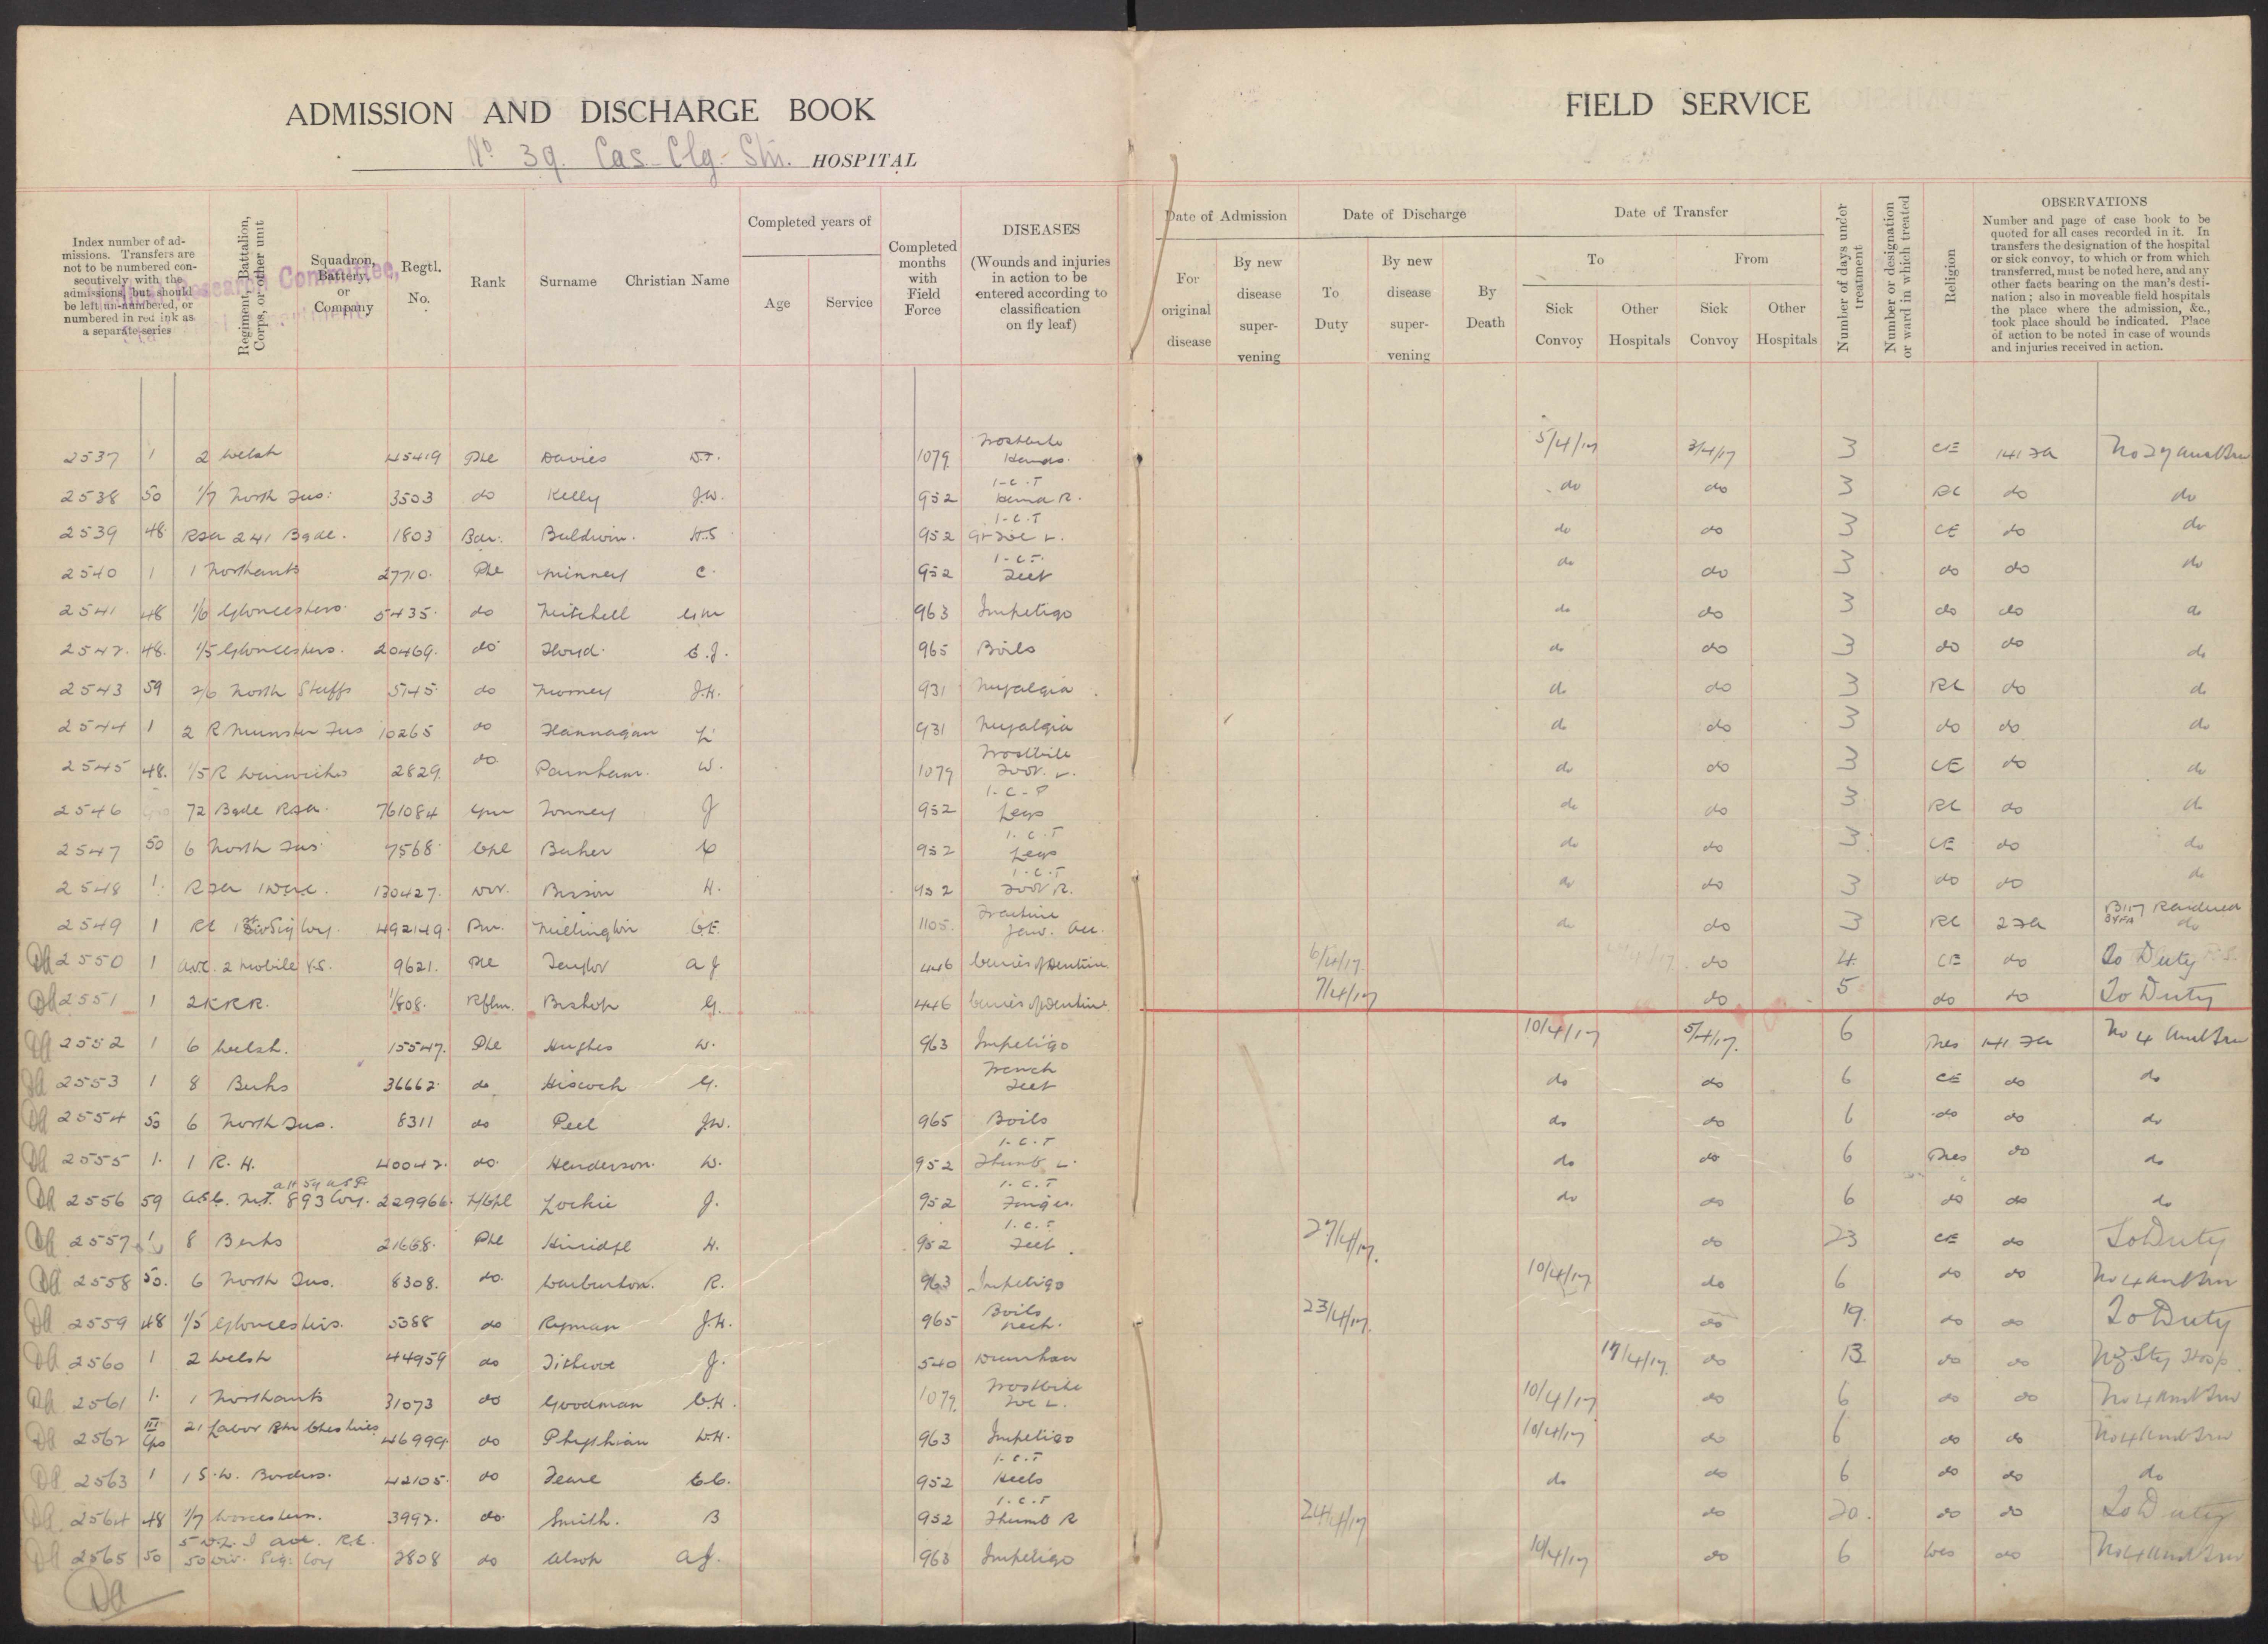 ADMISSION AND DISCHARGE BOOK
FIELD SERVICE
No 39. Cas. Clg. Stn. HOSPITAL
Index number of admissions. Transfers are not to be numbered consecutively with the admissions, but should be left un-numbered, or numbered in red ink as a separate series
Regiment, Battalion, Corps, or other unit
Squadron, Battery, or Company
Regtl. No.
Rank
Surname
Christian Name
Completed years of
Age
Service
Completed months with Field Force
DISEASES
(Wounds and injuries in action to be entered according to classification on fly leaf)
Date of Admission
For original disease
By new disease supervening
Date of Discharge
To Duty
By new disease supervening
By Death
Date of Transfer
To
Sick Convoy
Other Hospitals
From
Sick Convoy
Other Hospitals
Number of days under treatment
Number or designation or ward in which treated
Religion
OBSERVATIONS
Number and page of case book to be quoted for all cases recorded in it. In transfers the designation of the hospital or sick convoy, to which or from which transferred, must be noted here, and any other facts bearing on the man's destination; also in moveable field hospitals the place where the admission, &c., took place should be indicated. Place of action to be noted in case of wounds and injuries received in action.
Research Committee,
2537 1 2 Welsh 45419 Pte Davies 1079 Frostbite Hands. 5/4/17 3/4/17 3 CE 141 FA
2538 50 1/7 North Fus: 3503 do Kelly J.W. 952 I.C.T Hand R. do do 3 RC do do
2539 48 RFA 241 Bgde. 1803 Bdr. Baldwin. H.S 952 I.C.T do do 3 CE do do
2540 1 1 Northants 27710. Pte Minney C. 952 I.C.T. Feet do do 3 do do do
2541 48 1/6 Gloucesters. 5435. do Mitchell 963 Impetigo do do 3 do do do
2542. 48. 1/5 Gloucesters. 20469. do Floyd. 965 Boils do do 3 do do do
2543 59 2/6 North Staffs 5145 do J.H. 931 Myalgia do do 3 RC do do
2544 1 2 R Munster Fus 10265 do Flannagan 931 Myalgia do do 3 do do do
2545 48. 1/5 R Warwicks 2829. do Parnham. W. 1079 Frostbite Foot. L. do do 3 CE do do
2546 72 Bgde RFA. 761084 Gnr J 952 Legs do do 3 RC do do
2547 50 6 North Fus 7568 Cpl 952 I.C.T Legs do do 3 CE do do
2548 1. 130427. H. 952 I.C.T Foot R. do do 3 do do do
2549 1 492149. Millington 1105. Fracture Jaw. do do 3 RC 2 FA do
DA 2550 1 AVC. 2 Mobile V.S. 9621. Pte Taylor A J 446 Caries of Dentine 6/4/17. do 4. CE do To Duty
DA 2551 1 2 KRR. 1/808. Rflm. Bishop G. 446 Caries of Dentine 7/4/17 do 5 do do To Duty
DA 2552 1 6 Welsh. 15547. Pte Hughes W. 963 Impetigo 10/4/17 5/4/17. 6 Pres 141 FA
DA 2553 1 8 Berks 36662. do Hiscock G. Trench Feet do do 6 CE do do
DA 2554 50 6 North Fus. 8311 do Peel J.W. 965 Boils do do 6 do do do
DA 2555 1. 1 R. H. 40042. do. Henderson. W. 952 I.C.T Thumb L. do do 6 Pres do do
DA 2556 59 ASC. M.T. 893 Coy. 229966. Lockie J. 952 I.C.T do do 6 do do do
DA 2557 1 8 Berks 21668. Pte H. 952 I.C.T Feet. 27/4/17. do 23 CE do To Duty
DA 2558 50. 6 North Fus. 8308. do. Warburton. R. 963 Impetigo 10/4/17 do 6 do do
DA 2559 48 1/5 Gloucesters. 5388 do Ryman J.H. 965 Boils Neck. 23/4/17. do 19. do do To Duty
DA 2560 1 2 Welsh 44959 do J. 540 17/4/17. do 13 do do Hosp.
DA 2561 1. 1 Northants 31073 do Goodman C.H. 1079. Frostbite Toe L. 10/4/17 do 6 do do
DA 2562 III 21 Labor Btn Cheshires 46999. do Phythian W.H. 963 Impetigo 10/4/17 do 6 do do
DA 2563 1 1 S.W. Borders. 42105. do 952 I.C.T Heels do do 6 do do do
DA 2564 48 1/7 Worcesters. 3992. do. Smith. B 952 I.C.T Thumb R 24/4/17 do 20. do do To Duty
DA 2565 50 50 Div. Sig: Coy 2808 do Alsop A.J. 963 Impetigo 10/4/17 do 6 Wes do
DA